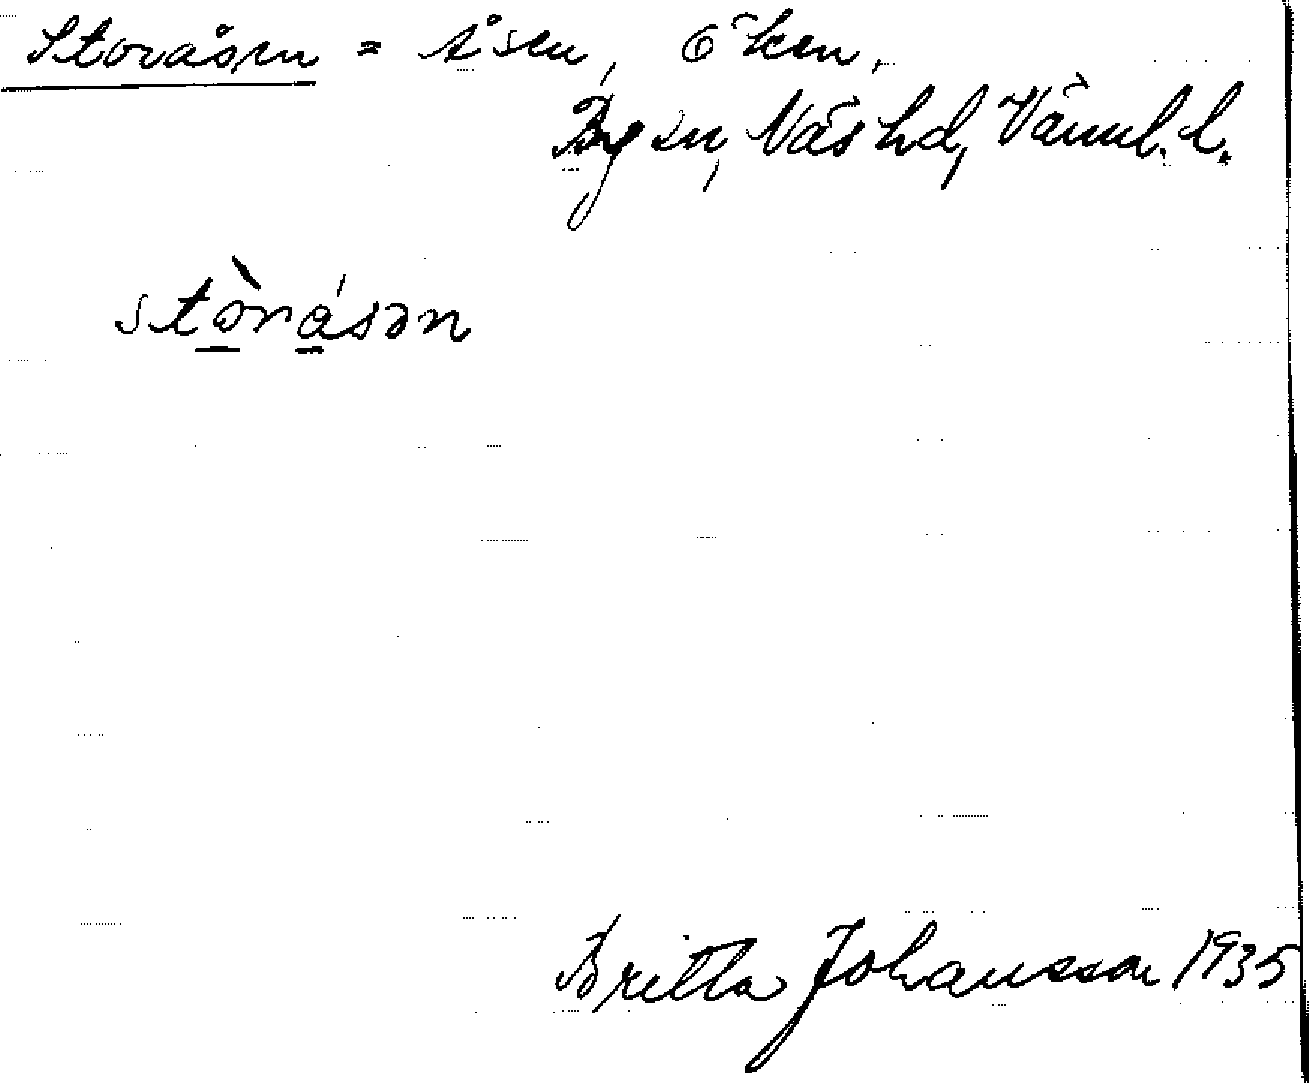 Storåsen = Åsen, Öken.
By sn, Näs hd, Värml. l.
stòråsən
Britta Johansson 1935